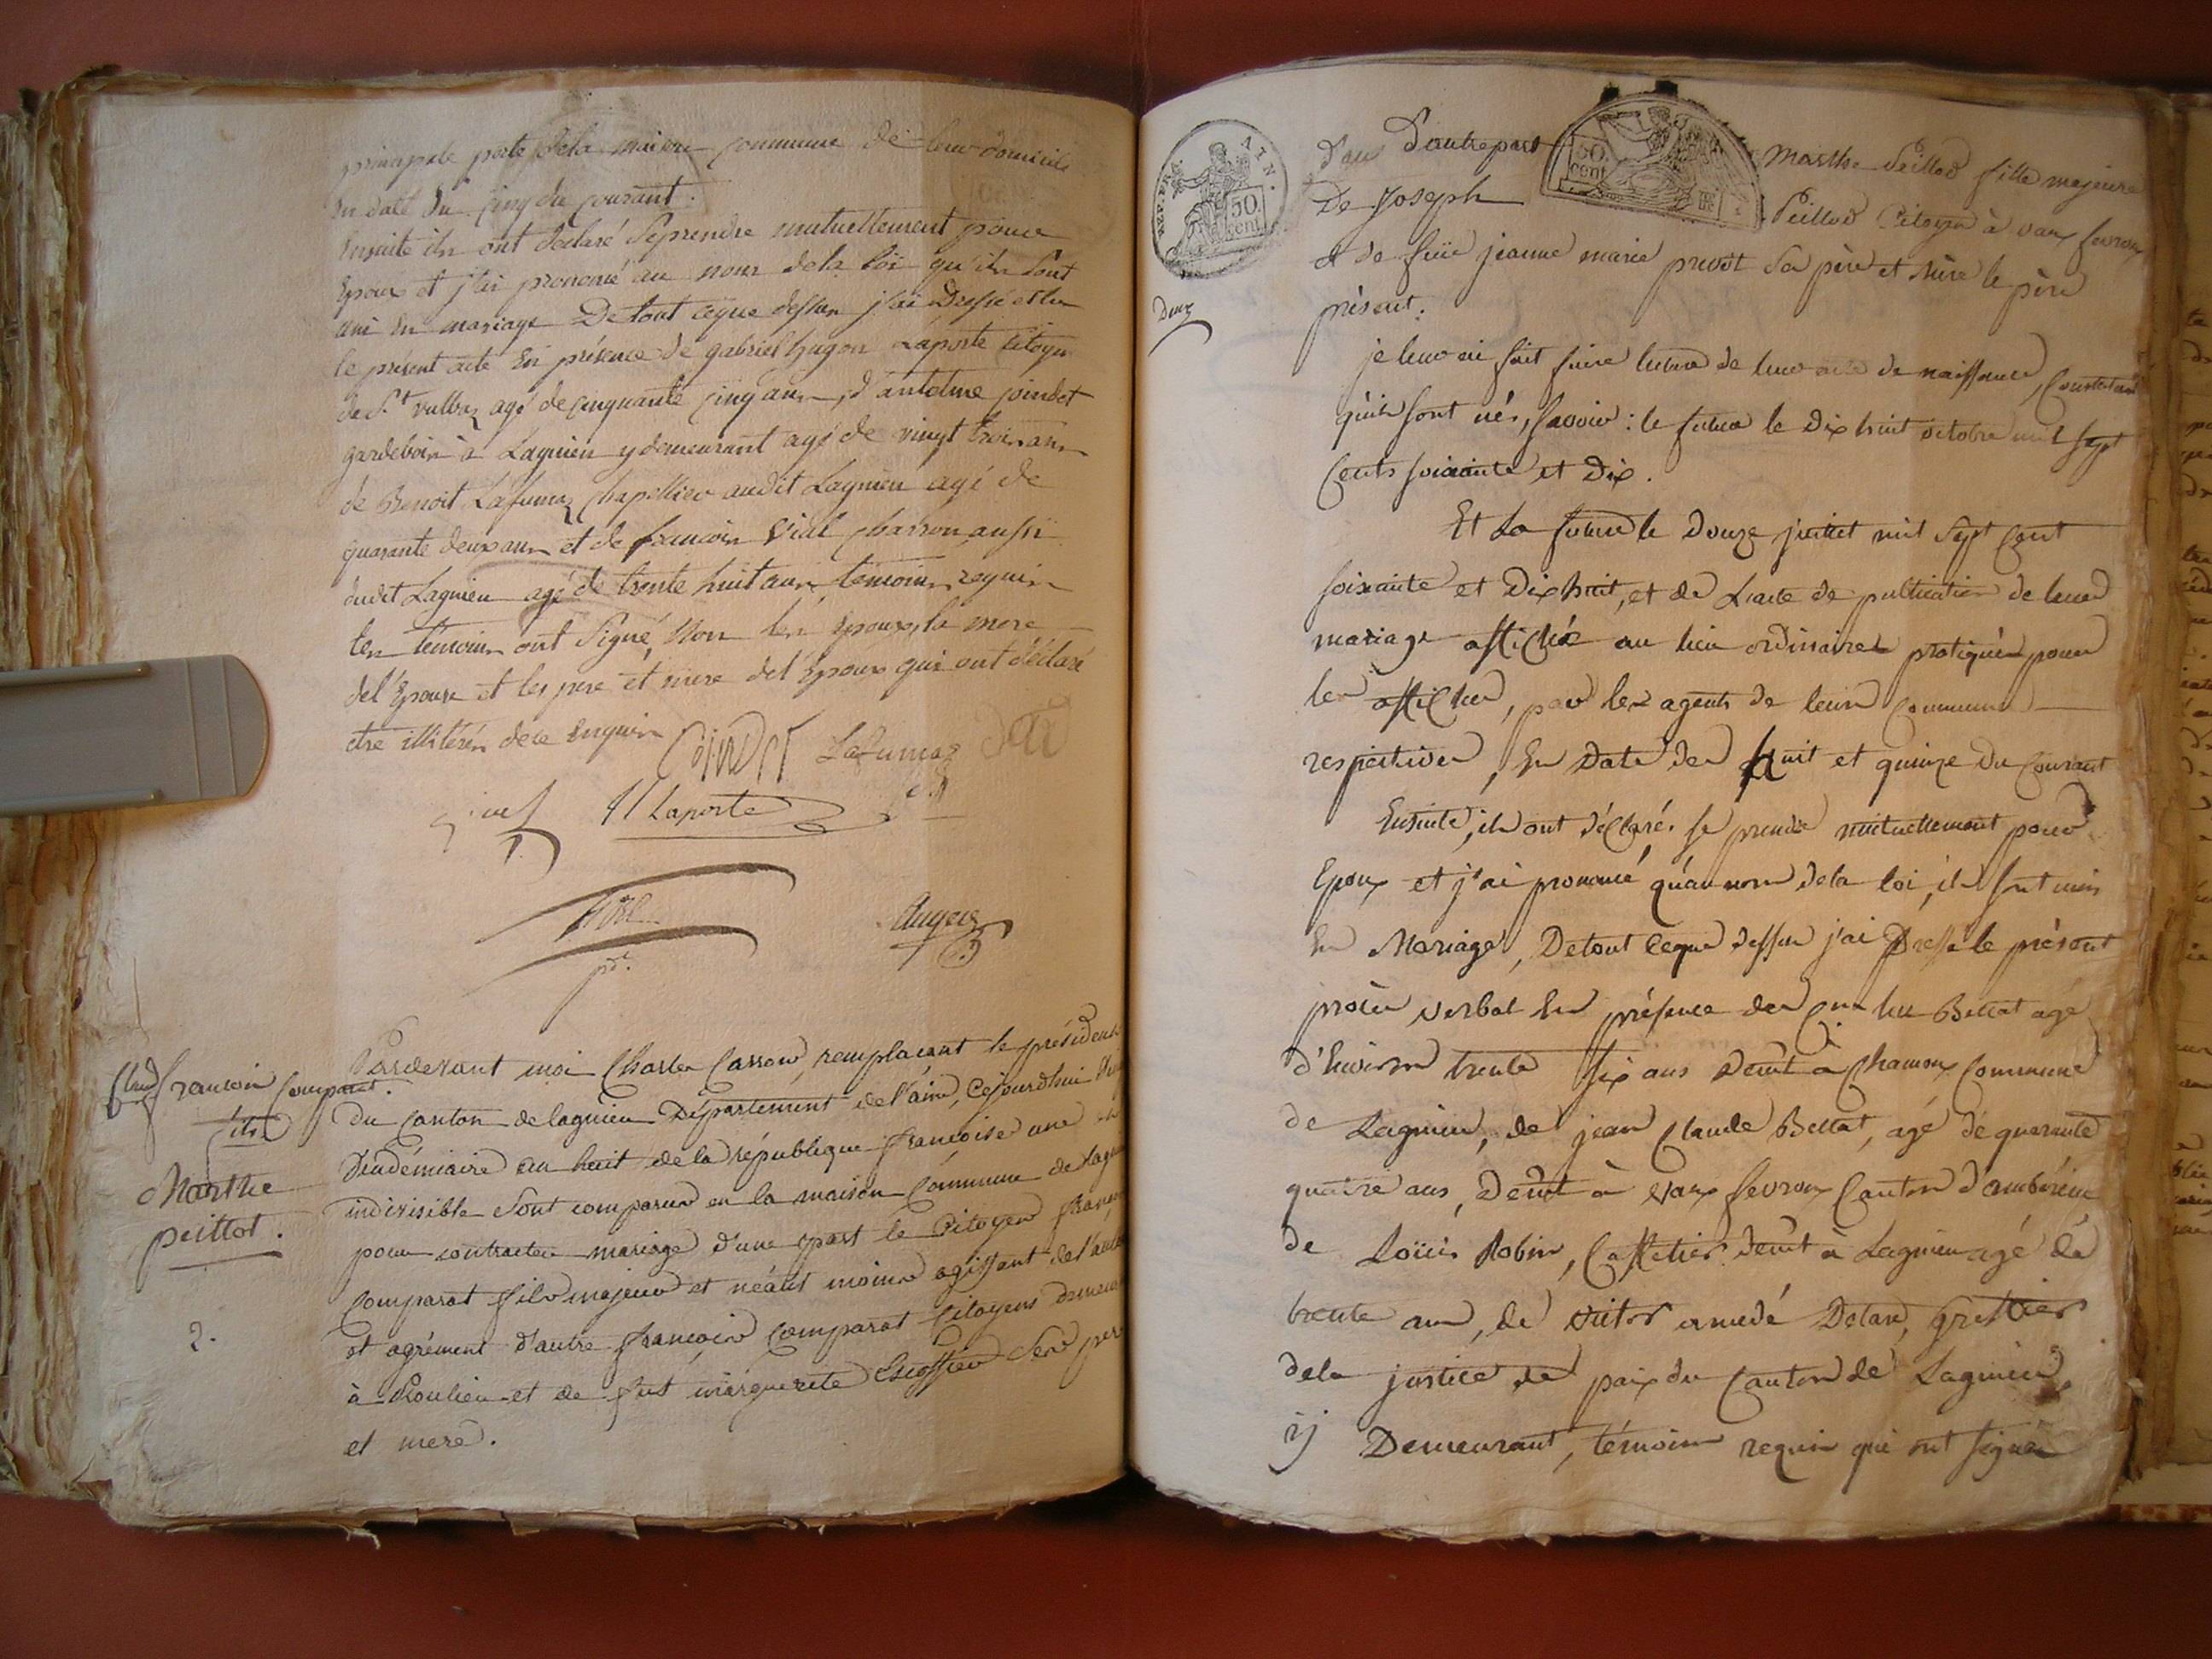 principale porte de la maison commune de leur domicile
En date du cinq du courant.
Ensuite ils ont déclaré se prendre mutuellement pour
Epoux et j'ai prononcé au nom de la loi qu'ils sont
uni en mariage De tout ceque dessus j'ai Dressé et lu
le présent acte En présence de gabriel hugon Laporte Citoyen
de St. vulbaz agé de cinquante cinq ans, d'antelme joindot
gardebois à Lagnieu y demeurant agé de vingt trois ans
de Benoit Lafumaz chapellier audit Lagnieu agé de
quarante deux ans et de francois Vial charron aussi
audit Lagnieu agé de trente huit ans témoins requis
les témoins ont signé, Non les Epoux, la mere
del'Epouse et les pere et mere del'Epoux qui ont déclaré
etre illitérés de ce Enquis
Joindot Lafumaz
H Laporte
Auger
Clud francois Comparat.
Marthe
peillot.
2.
Pardevant moi Charles Carron, remplaçant le président
du Canton de lagnieu Département de l'ain, Cejourdhui
Vindémiaire an huit de la république francoise une
indivisible Sont comparus en la maison Commune de Lagnieu
pour contracter mariage d'une part le Citoyen
Comparat fils majeur et néant moins agissant de l'
et agrément d'autre francois Comparat Citoyens
à Proulieu et de fut marguerite Escoffier Ses
et mere.
AIN.
50
cent
Deux
50
cent
D'autrepart Marthe Peillod fille majeure
De Joseph Peillod Citoyen à vaux fevroux
et de füe jeanne marie prevot Sa père et Mère le père
présent.
je leur ai fait faire lecture de leur acte de naissance, Constatant
qu'ils sont nés, Savoir : le futur le Dix huit octobre mil sept
Cents soixante et Dix.
Et La future le Douze juillet mil Sept Cent
soixante et Dix huit, et de L'acte de publication de leur
mariage affiché au lieu ordinaires pratiqués pour
les afficher, par les agents de leurs Communes
respectives, En Date des huit et quinze Du Courant
Ensuite, ils ont déclaré se prendre mutuellement pour
Epoux et j'ai prononcé qu'au nom de la loi, ils sont unis
En Mariage, Detout ceque dessus j'ai Dressé le présent
procès verbal En présence des Cns luc Bellat agé
d'Environ trente six ans Demt à Chamoux Commune
de Lagnieu, de jean Claude Bellat, agé de quarante
quatre ans, Demt à vaux fevroux Canton d'ambérieux
de Loüis Robin, Caffetier Demt à Lagnieu agé de
trente ans, de victor amedé Delare, greffier
dela justice de paix du Canton de Lagnieu,
ij Demeurant, témoins requis qui ont signés